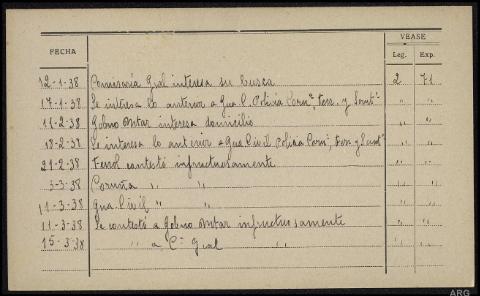 VEASE
FECHA Leg. Exp.
12-1-38 Comisaría Gral interesa su busca 2 71
17-1-38 Se intersa lo anterior a Gua C. Policia Coruª, Ferr. y " "
11-2-38 Gobno Mtar interesa domicilio " "
18-2-38 Se interesa lo anterior a Gua Civil Policia Corª, Ferr y " "
21-2-38 Ferrol contestó infructuosamente " "
3-3-38 Coruña " " " "
11-3-38 Gua. Civil " " " "
11-3-38 Se contestó a Gobno Mtar infructuosamente " "
15-3-38 " " a Cª Gral " " " "
ARG